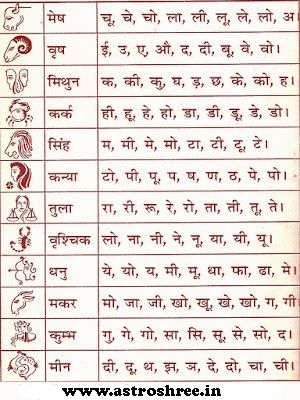 मेष चू, चे, चो, ला, ली, लू, ले, लो, अ
वृष ई, उ, ए, औ, द, दी, बू, वे, वो।
मिथुन क, की, कु, घ, ड़, छ, के, को, ह।
कर्क ही, हू, हे, हो, डा, डी, डू, डे, डो।
सिंह म, मी, मे, मो, टा, टी, टू, टे।
कन्या टो, पी, पू, प, ष, ण, ठ, पे, पो।
तुला रा, री, रू, रे, रो, ता, ती, तू, ते।
वृश्चिक लो, ना, नी, ने, नू, या, यी, यू।
धनु ये, यो, य, मी, मू, धा, फा, ढा, मे।
मकर मो, जा, जी, खो, खू, खे, खो, ग, गी
कुम्भ गु, गे, गो, सा, सि, सू, से, सो, द।
मीन दी, दू, थ, झ, ञ, दे, दो, चा, ची।
www.astroshree.in